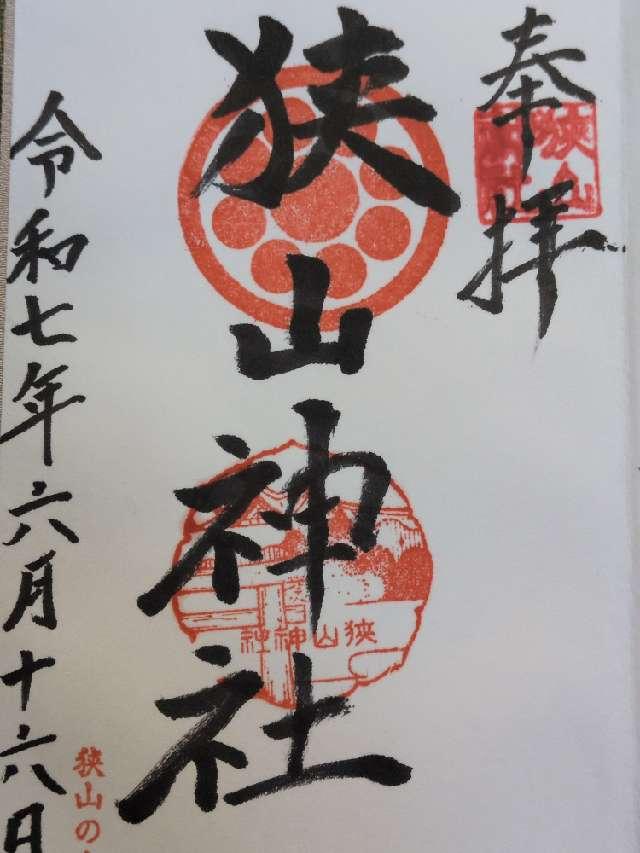 奉拝
狭山神社
狭山神社
令和七年六月十六日
狭山の